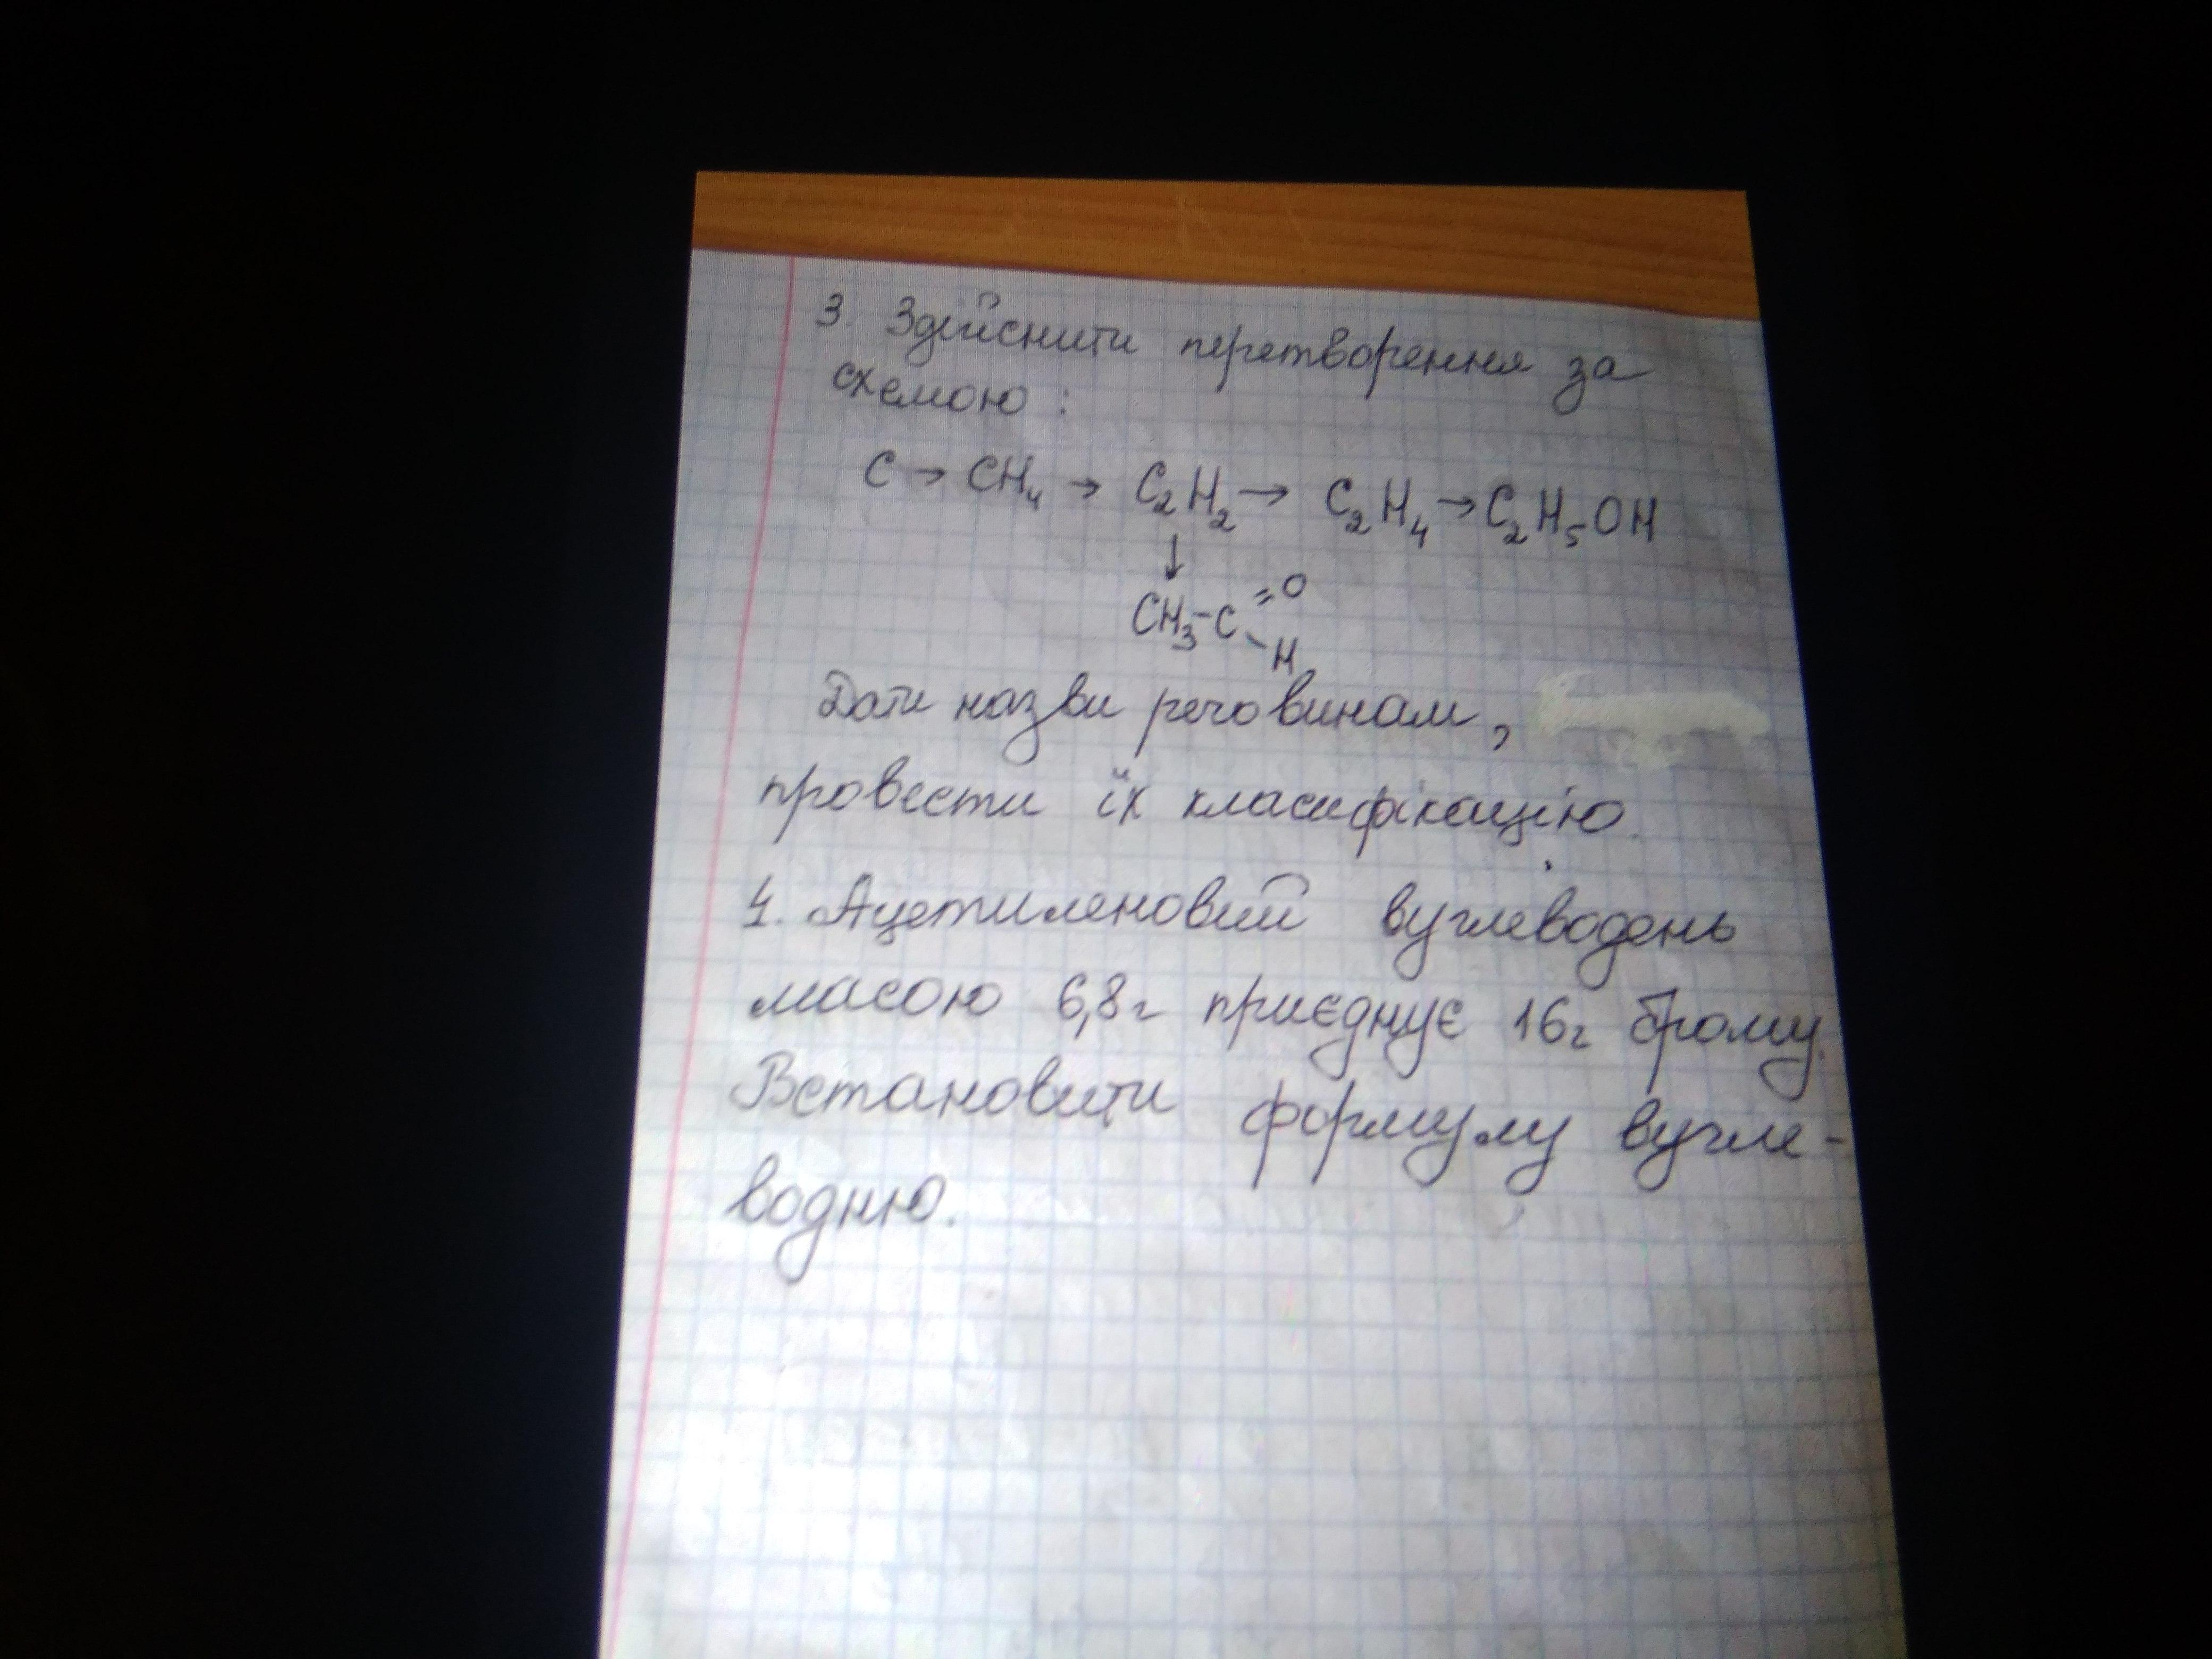 3. Здійснити перетворення за
схемою :
C → CH₄ → C₂H₂ → C₂H₄ → C₂H₅OH
↓
CH₃-C =O
-H
Дати назви речовинам,
провести їх класифікацію.
4. Ацетиленовий вуглеводень
масою 6,8г приєднує 16г брому.
Встановити формулу вугле-
водню.